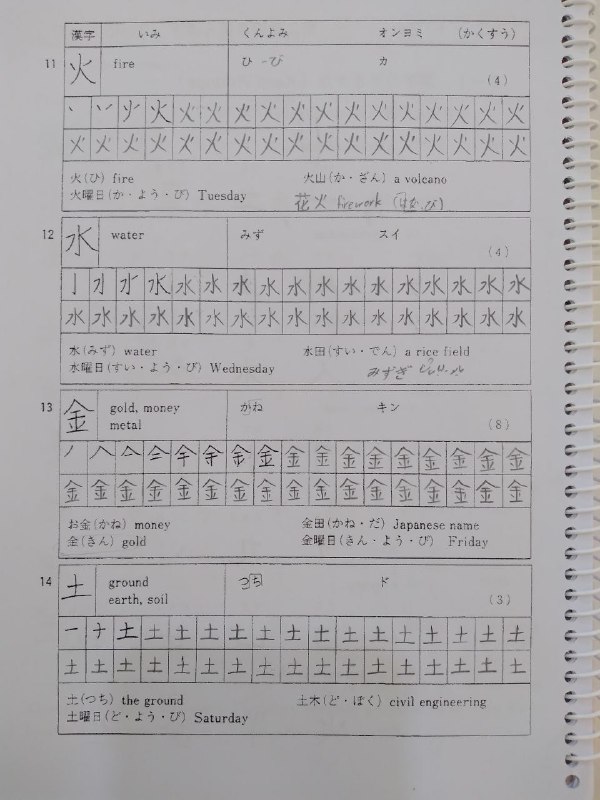 漢字 いみ くんよみ オンヨミ (かくすう)
11 火 fire ひ -び カ (4)
丶 丷 少 火 火 火 火 火 火 火 火 火 火 火 火 火 火
火 火 火 火 火 火 火 火 火 火 火 火 火 火 火 火 火
火(ひ) fire 火山(か・ざん) a volcano
火曜日(か・よう・び) Tuesday 花火 firework (はな.び)
12 水 water みず スイ (4)
亅 水 水 水 水 水 水 水 水 水 水 水 水 水 水
水 水 水 水 水 水 水 水 水 水 水 水 水 水 水 水 水
水(みず) water 水田(すい・でん) a rice field
水曜日(すい・よう・び) Wednesday みずぎ
13 金 gold, money かね キン (8)
metal
ノ 人 亼 金 金 金 金 金 金 金 金 金
金 金 金 金 金 金 金 金 金 金 金 金 金 金 金 金 金
お金(かね) money 金田(かね・だ) Japanese name
金(きん) gold 金曜日(きん・よう・び) Friday
14 土 ground つち ド (3)
earth, soil
一 十 土 土 土 土 土 土 土 土 土 土 土 土 土 土 土
土 土 土 土 土 土 土 土 土 土 土 土 土 土 土 土 土
土(つち) the ground 土木(ど・ぼく) civil engineering
土曜日(ど・よう・び) Saturday